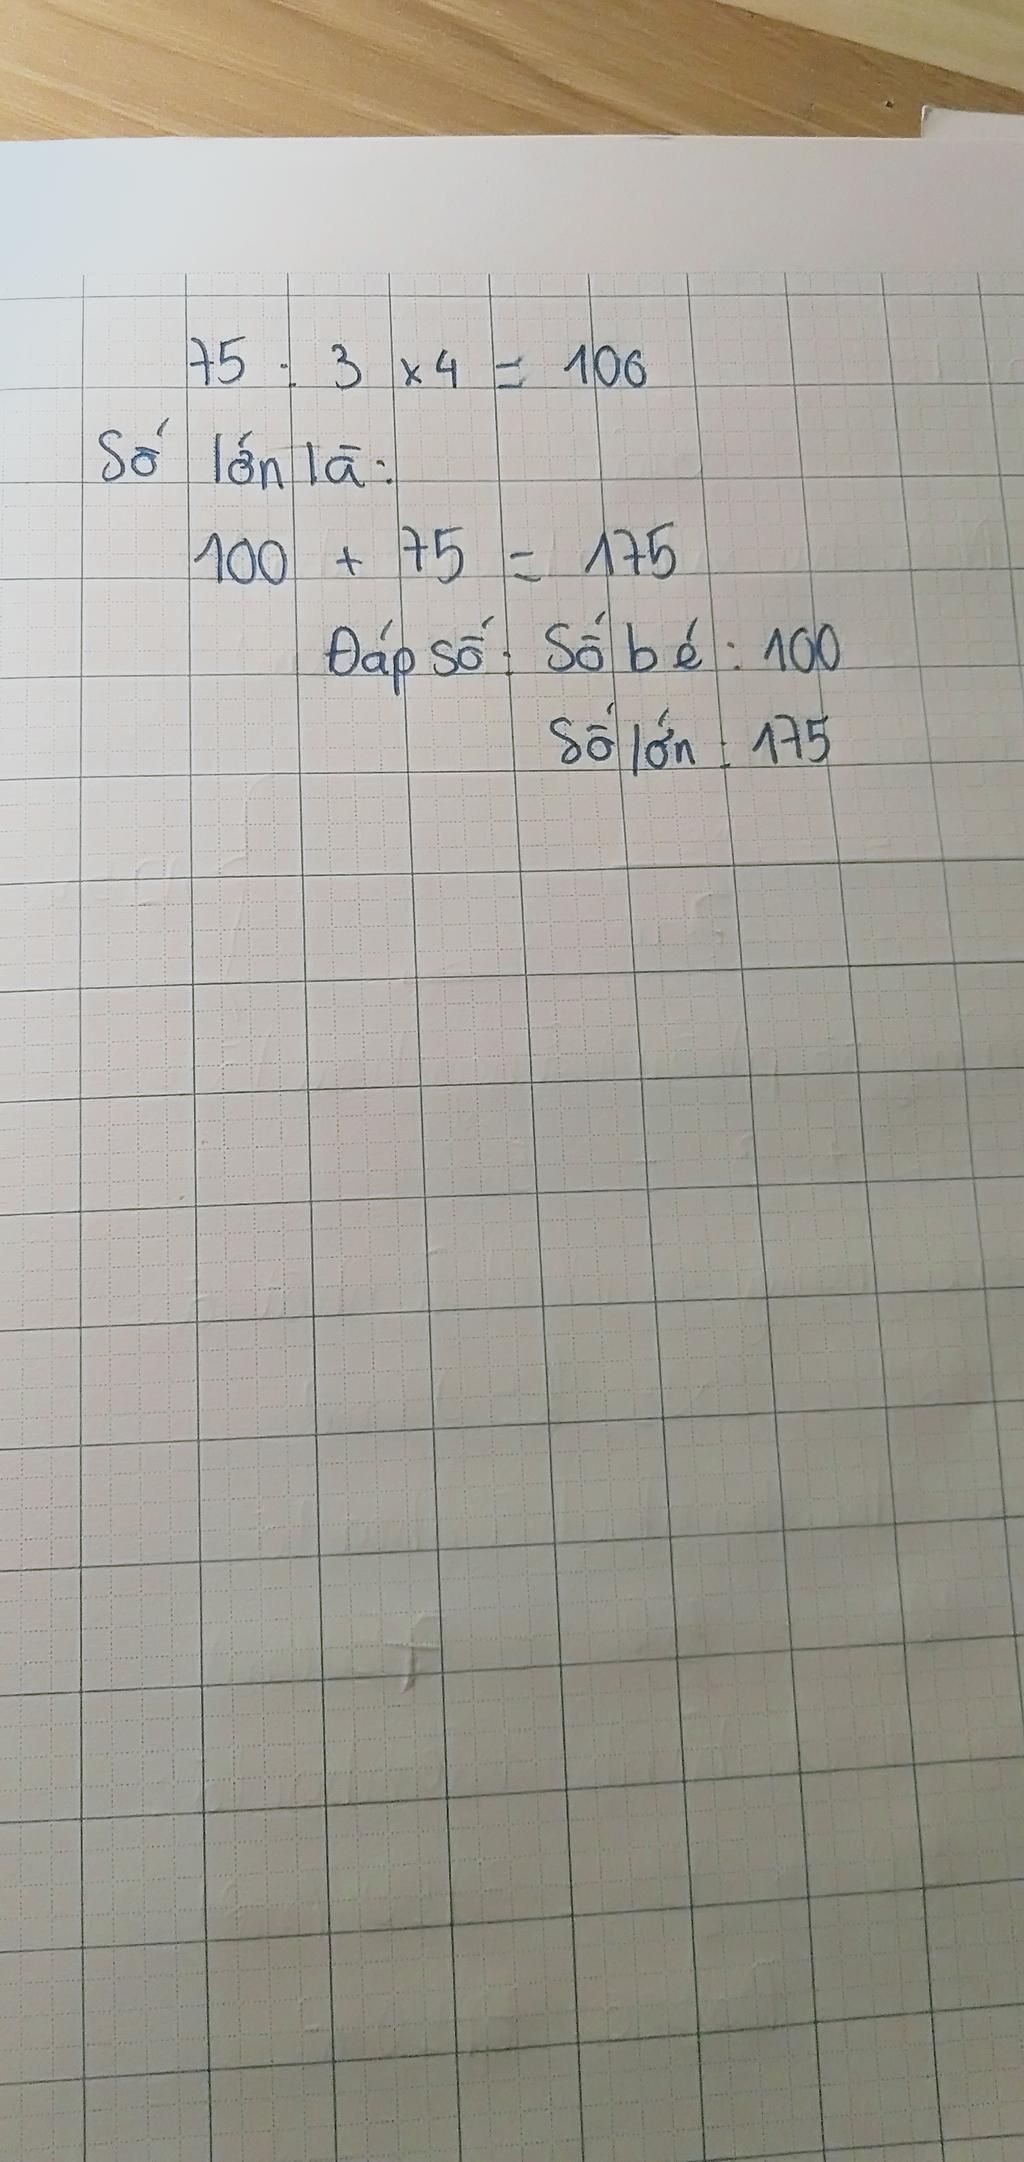 75 : 3 x 4 = 106
Số lớn là:
100 + 75 = 175
Đáp số: Số bé : 100
Số lớn : 175